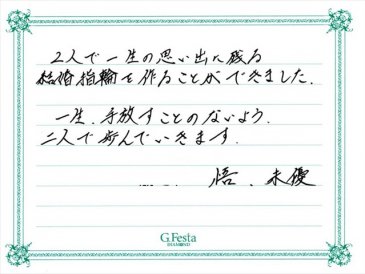 2人で一生の思い出に残る
結婚指輪を作ることができました.
一生、手放すことのないよう、
二人で歩んでいきます.
悟、未優
G.Festa
DIAMOND